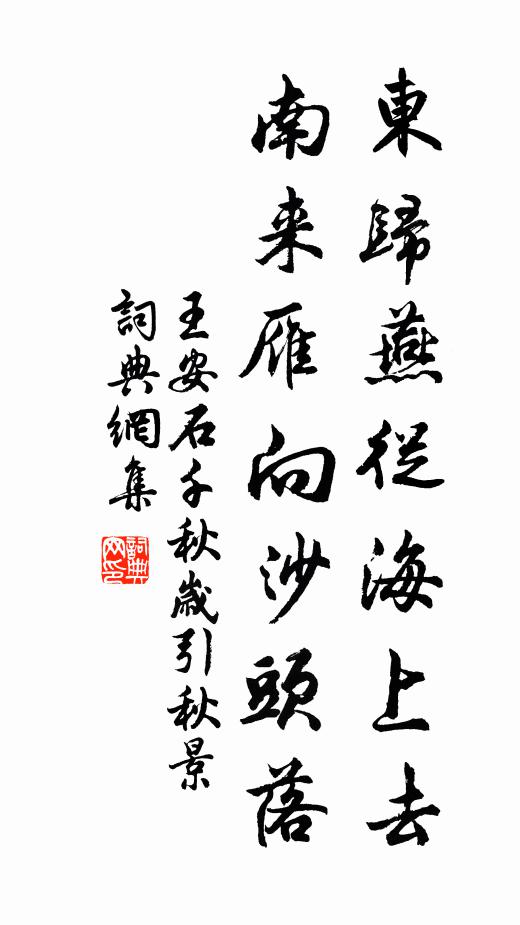 東歸燕從海上去
南来雁向沙頭落
王安石千秋歲引秋景
詞典網集
詞典網印